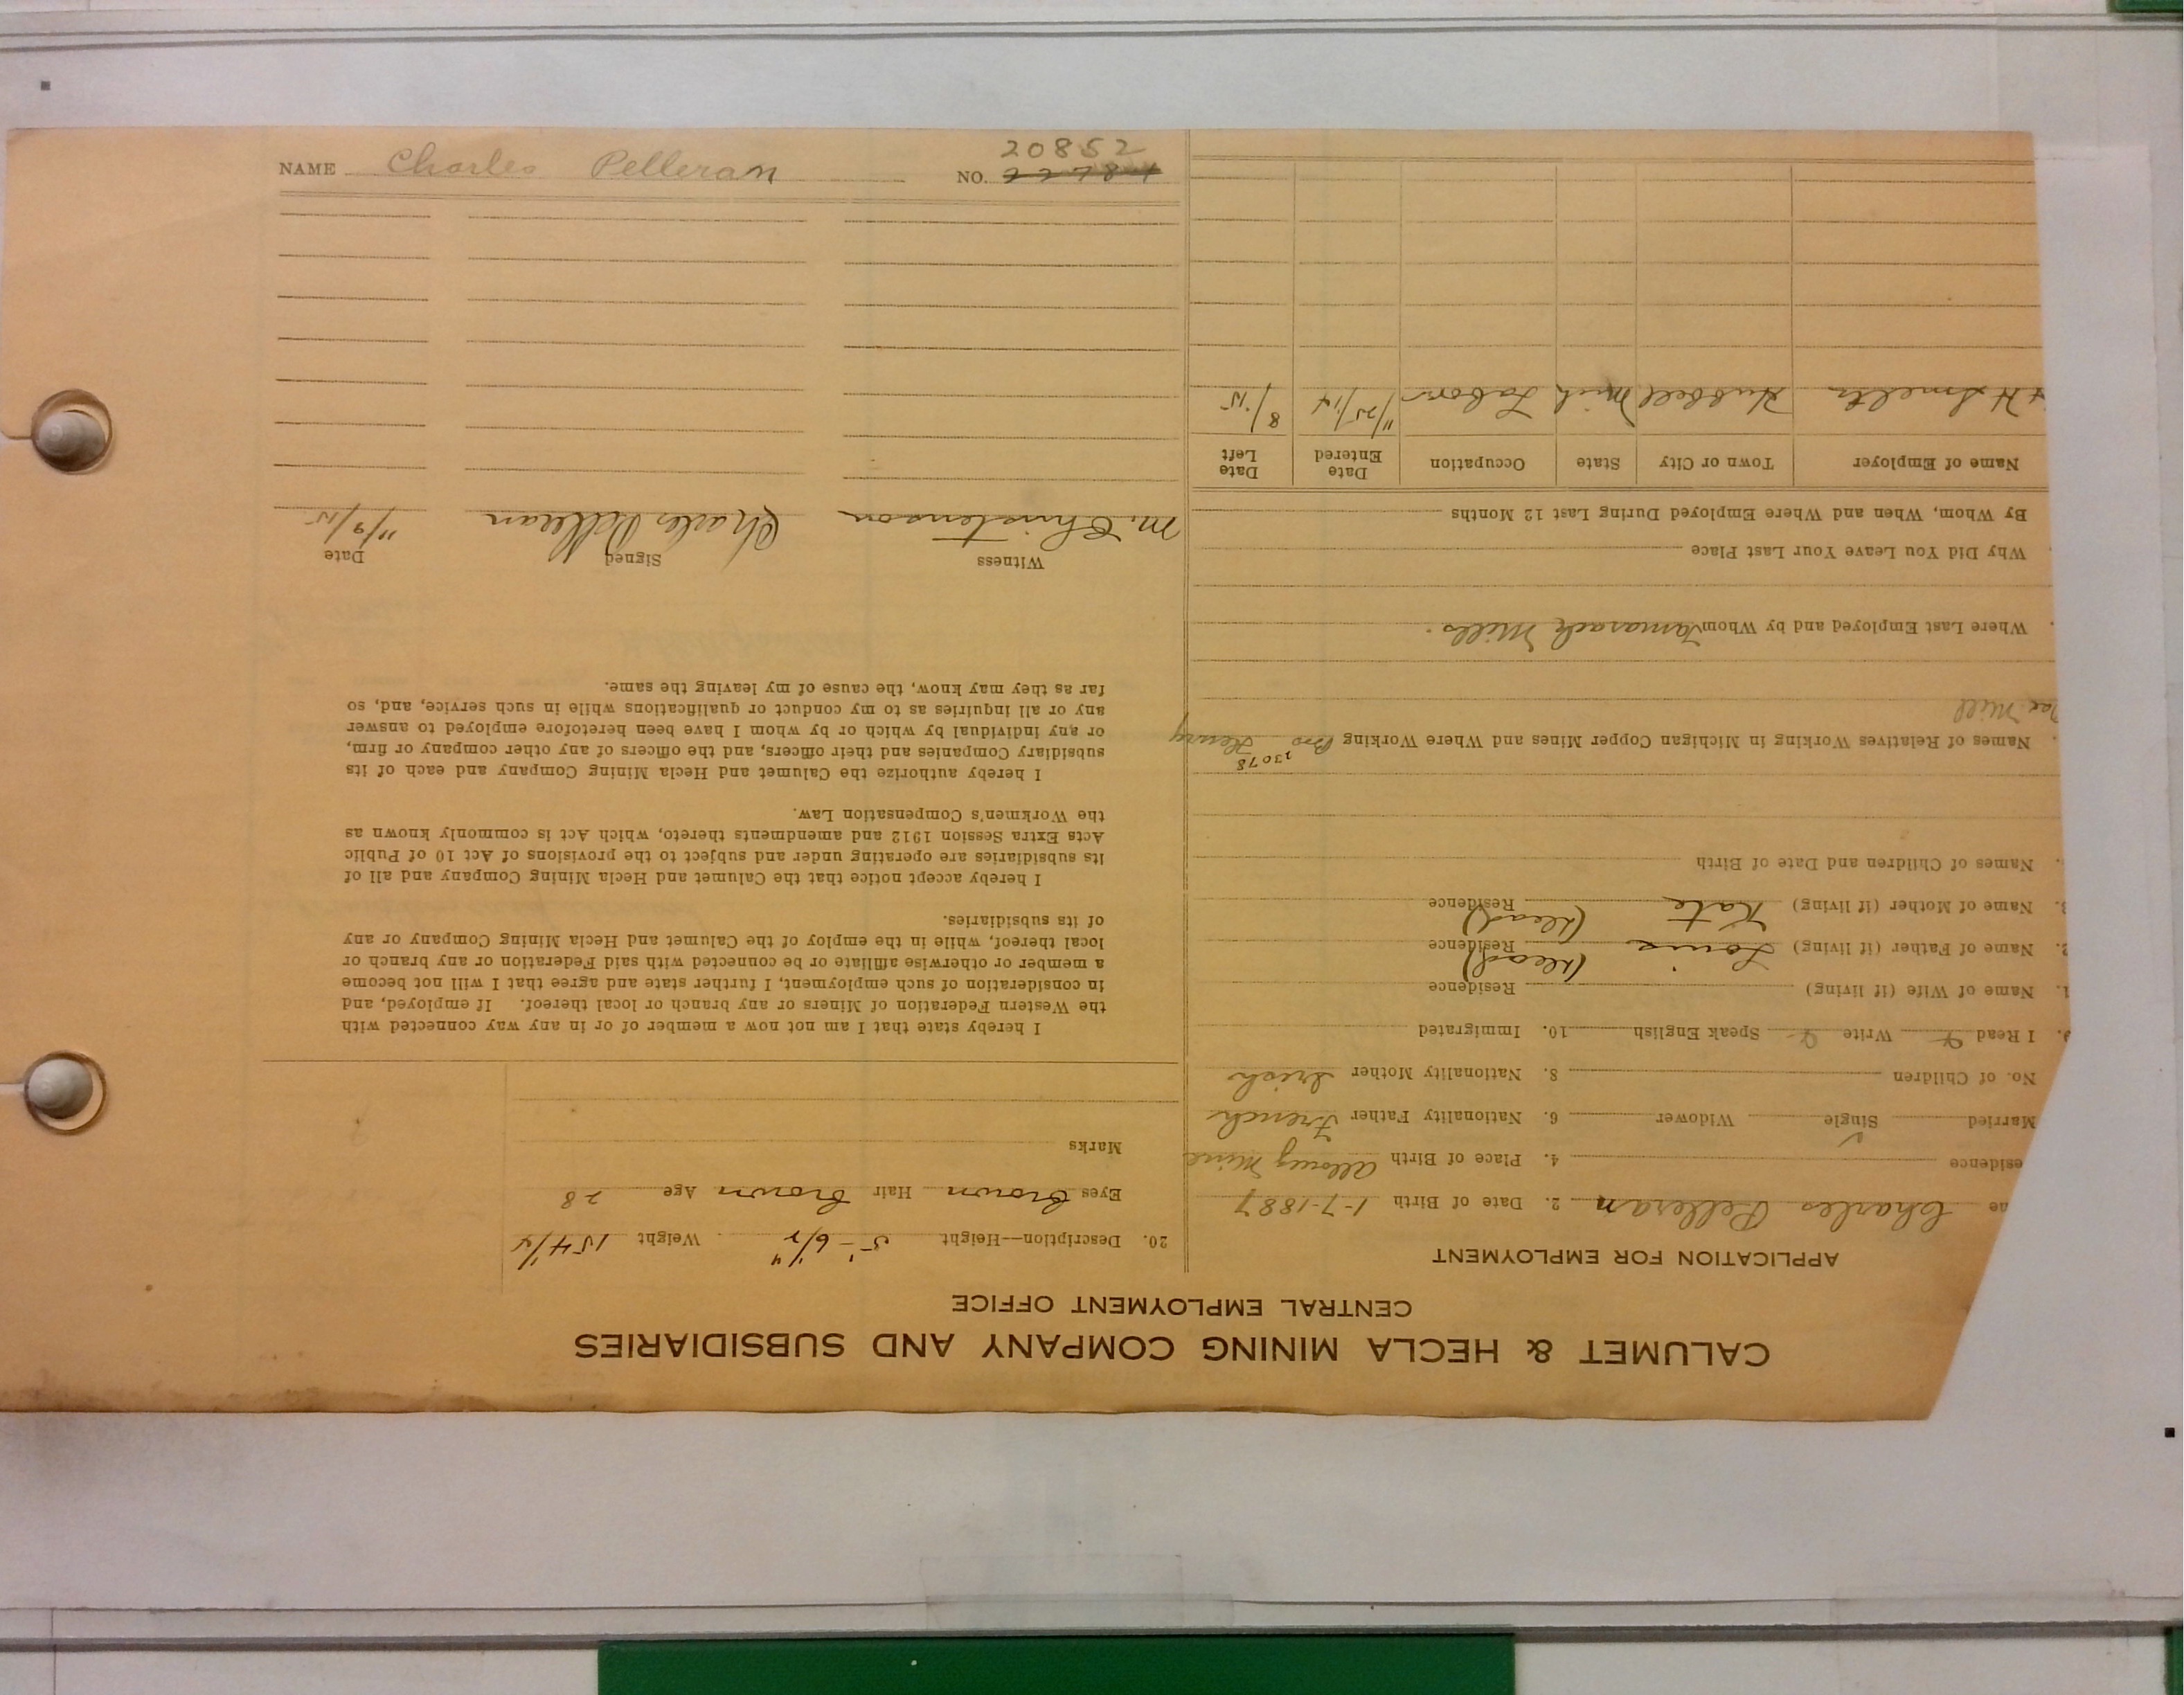 NAME Charles Pelleran NO. 20852
CALUMET & HECLA MINING COMPANY AND SUBSIDIARIES
CENTRAL EMPLOYMENT OFFICE
APPLICATION FOR EMPLOYMENT
me Charles Pelleran 2. Date of Birth 1-7-1887
esidence 4. Place of Birth Allouez Mine
Married Single ✓ Widower 6. Nationality Father French
No. of Children 8. Nationality Mother Irish
I Read Write Speak English 10. Immigrated
1. Name of Wife (if living) Residence
2. Name of Father (if living) Louis Residence (Dead)
3. Name of Mother (if living) Kate Residence (Dead)
Names of Children and Date of Birth
23078
Names of Relatives Working in Michigan Copper Mines and Where Working Bro Henry
Mill
Where Last Employed and by Whom Tamarack Mills.
Why Did You Leave Your Last Place
By Whom, When and Where Employed During Last 12 Months
Name of Employer Town or City State Occupation Date Entered Date Left
+ H Smelter Hubbell Mich Labor 11/25/14 8/15
20. Description—Height 5'-6 1/2" Weight 154 1/4
Eyes Brown Hair Brown Age 28
Marks
I hereby state that I am not now a member of or in any way connected with
the Western Federation of Miners or any branch or local thereof. If employed, and
in consideration of such employment, I further state and agree that I will not become
a member or otherwise affiliate or be connected with said Federation or any branch or
local thereof, while in the employ of the Calumet and Hecla Mining Company or any
of its subsidiaries.
I hereby accept notice that the Calumet and Hecla Mining Company and all of
its subsidiaries are operating under and subject to the provisions of Act 10 of Public
Acts Extra Session 1912 and amendments thereto, which Act is commonly known as
the Workmen's Compensation Law.
I hereby authorize the Calumet and Hecla Mining Company and each of its
subsidiary Companies and their officers, and the officers of any other company or firm,
or any individual by which or by whom I have been heretofore employed to answer
any or all inquiries as to my conduct or qualifications while in such service, and, so
far as they may know, the cause of my leaving the same.
Witness Signed Date
M. Christenson Charles Pelleran 11/9/15